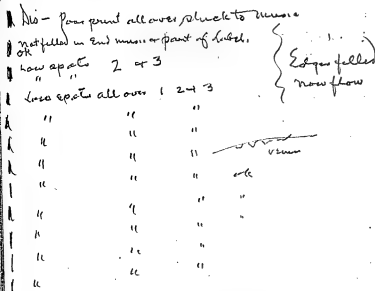 Dis - Poor print all over stuck to music
Not filled in End music or part of Label.
ok
Low spots 2 & 3
Low spots all over 1 2 & 3
Edges filled
now flow
" " "
" " "
" " "
" " " ok
" "
" " "
" " "
" "
"